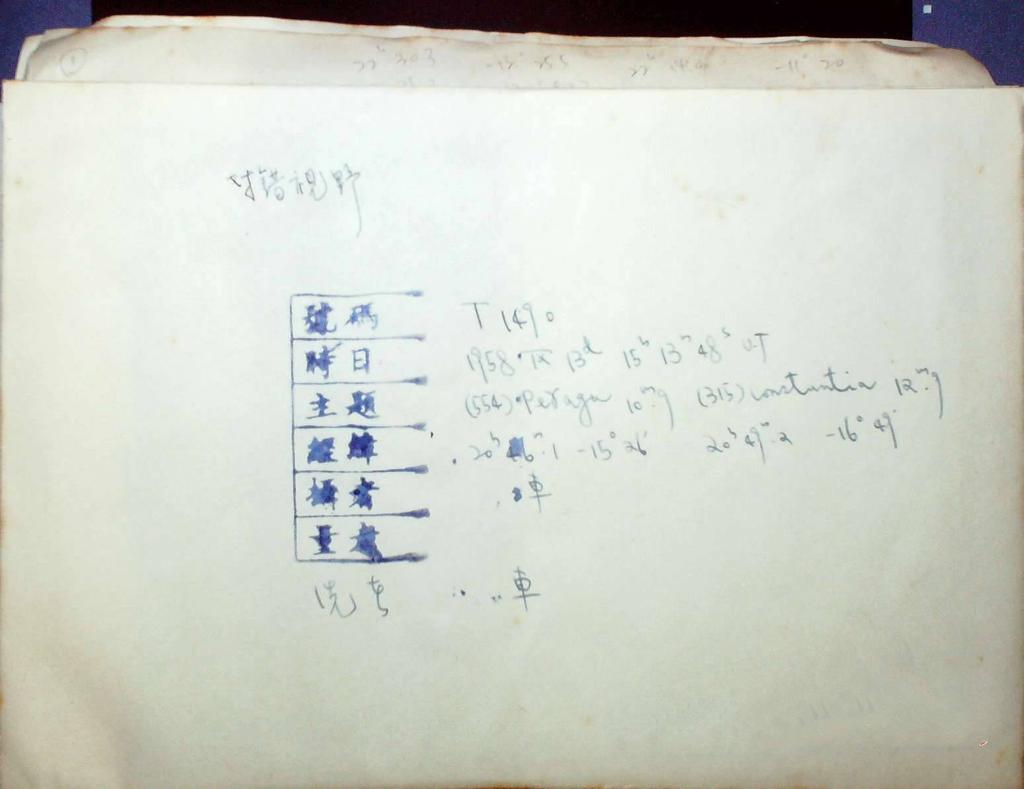 ① 22ʰ 20.3 -12° 25.5 22ʰ -11° 20
对错視野
號碼 T 1490
時日 1958.IX 13ᵈ 15ʰ 13ᵐ 48ˢ U.T
主題 (554) Peraga 10ᵐ.9 (315) Constantia 12ᵐ.9
經緯 20ʰ 46ᵐ.1 -15° 26' 20ʰ 49ᵐ.2 -16° 49'
攝者 車
量者
洗者 車